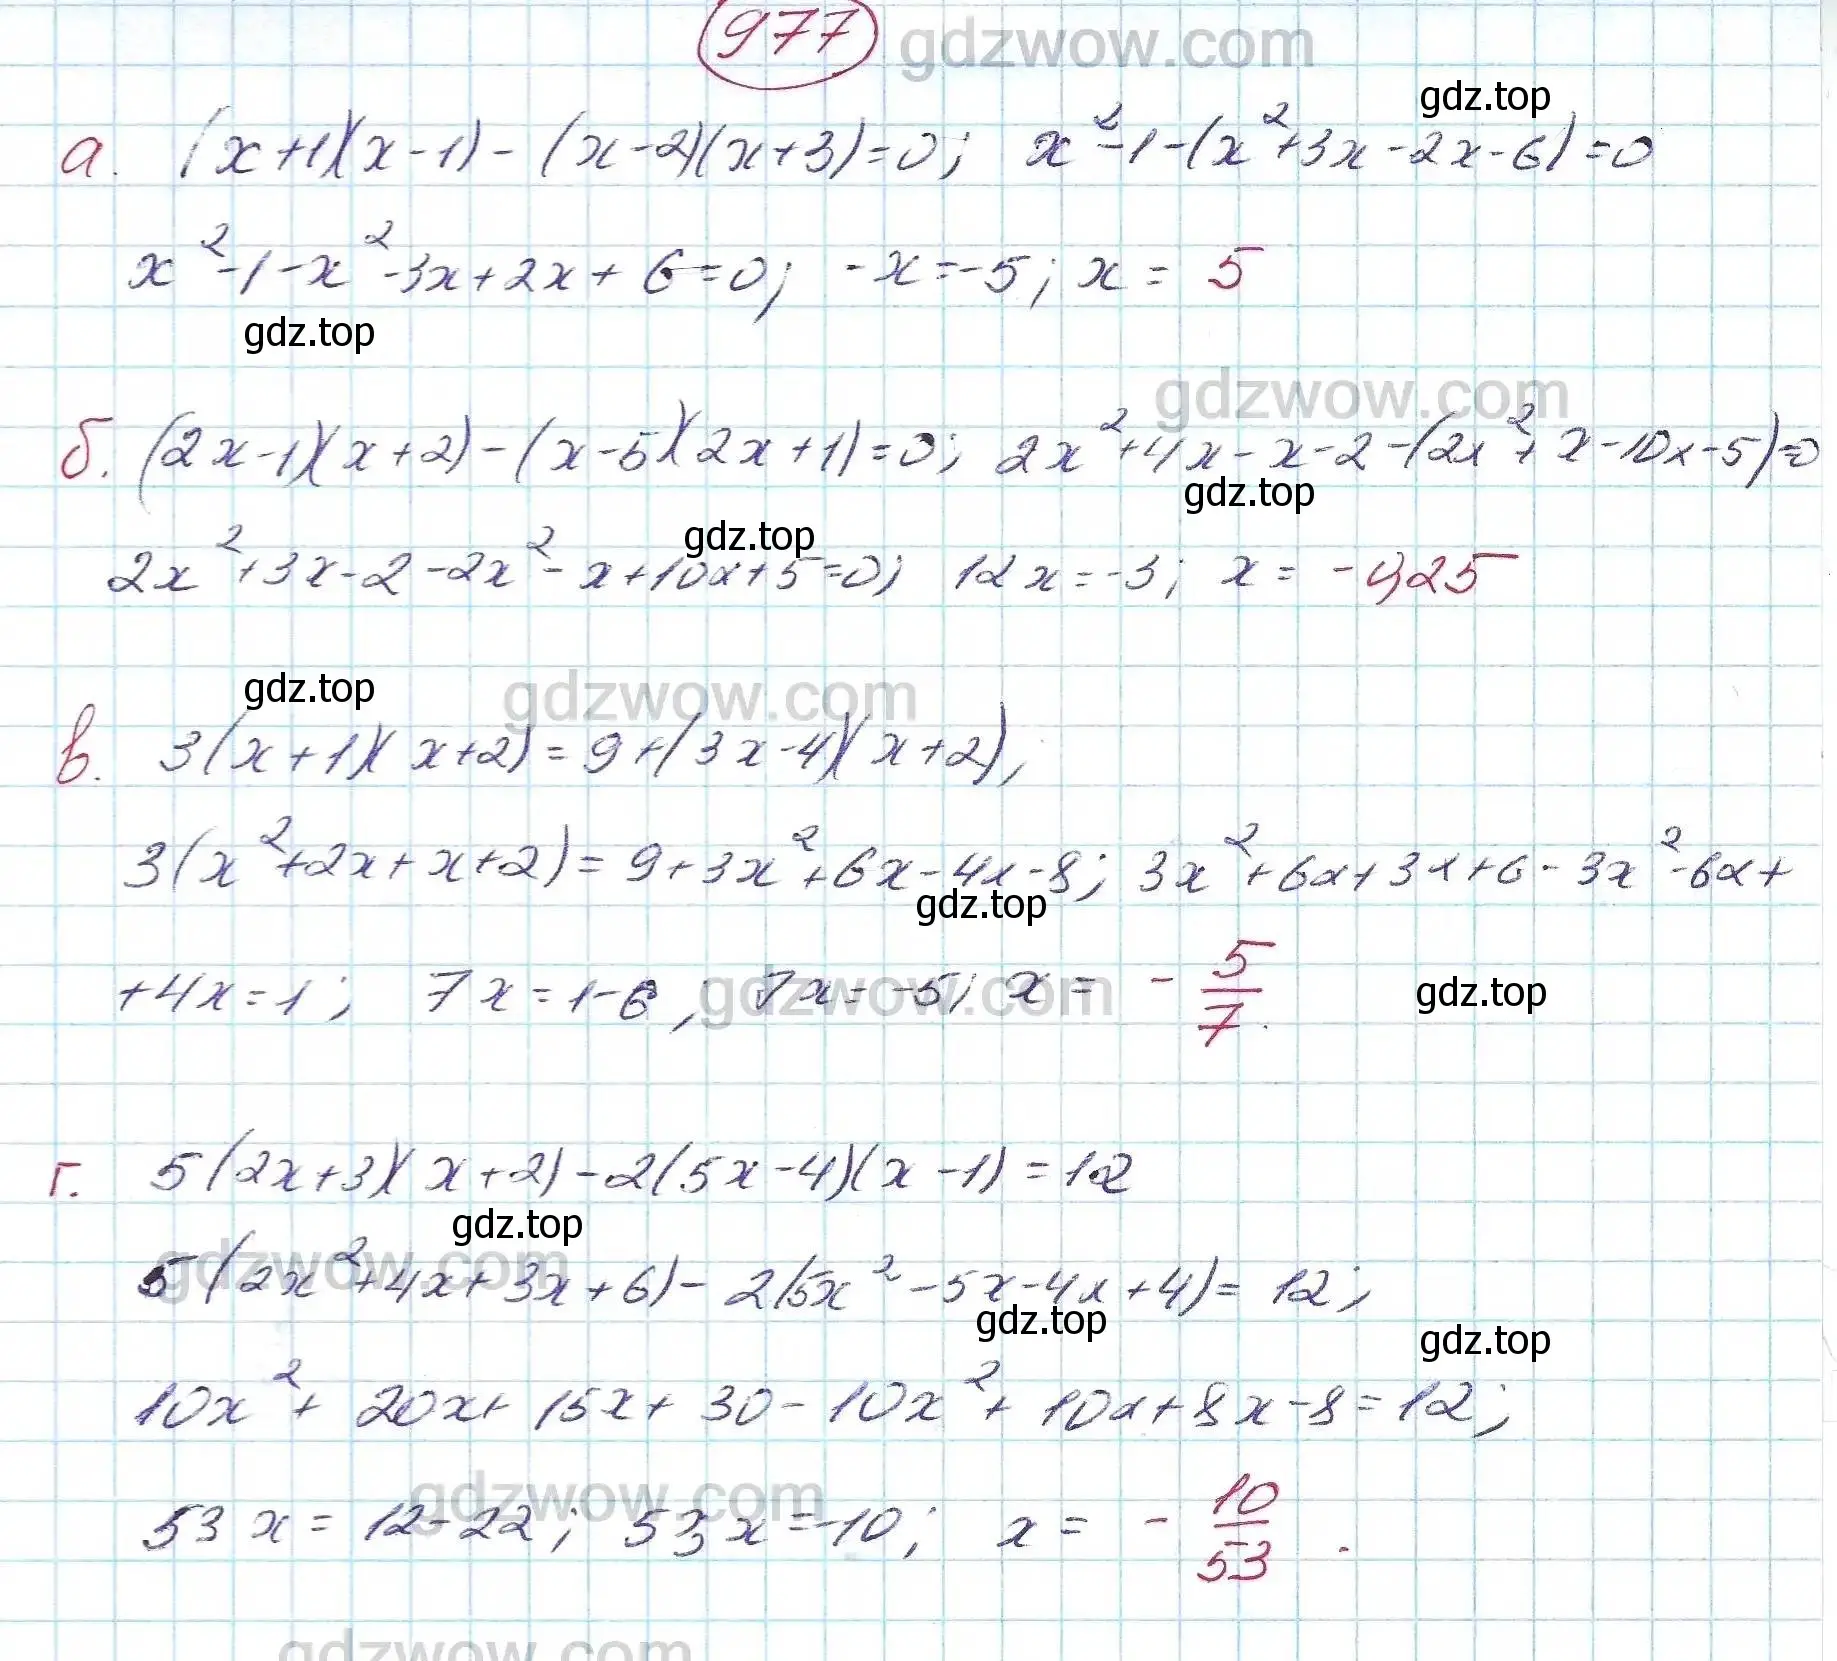 977 gdzwow.com
gdz.top
а. (x+1)(x-1)-(x-2)(x+3)=0; x²-1-(x²+3x-2x-6)=0
x²-1-x²-3x+2x+6=0; -x=-5; x= 5
gdz.top
gdzwow.com
б. (2x-1)(x+2)-(x-5)(2x+1)=0; 2x²+4x-x-2-(2x²+x-10x-5)=0
gdz.top
gdz.top
2x²+3x-2-2x²-x+10x+5=0; 12x=-3; x= -0,25
gdz.top gdzwow.com
в. 3(x+1)(x+2)=9+(3x-4)(x+2);
3(x²+2x+x+2)=9+3x²+6x-4x-8; 3x²+6x+3x+6-3x²-6x+
gdz.top
+4x=1; 7x=1-6; 7x=-5; x= -5/7.
gdzwow.com gdz.top
г. 5(2x+3)(x+2)-2(5x-4)(x-1)=12
gdz.top
gdzwow.com
5(2x²+4x+3x+6)-2(5x²-5x-4x+4)=12;
gdz.top gdz.top
10x²+20x+15x+30-10x²+10x+8x-8=12;
gdzwow.com
53x=12-22; 53x=-10; x= -10/53.
gdzwow.com